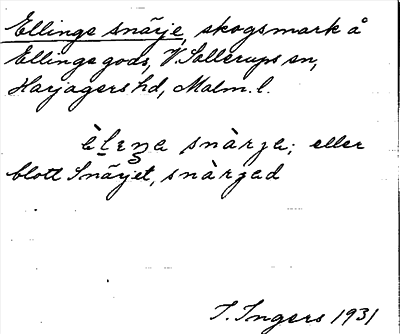 Ellinge snärje, skogsmark å
Ellinge gods, V. Sallerups sn,
Harjagers hd, Malm. l.
snàrga; eller
blott Snärjet, snàrgad
I. Ingers 1931